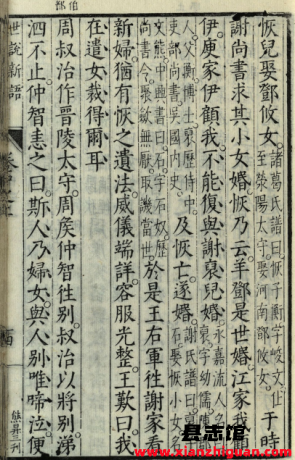 恢兒娶鄧攸女諸葛氏譜曰恢子衡字峻文仕至滎陽太守娶河南鄧攸女于時
謝尚書求其小女婚恢乃云羊鄧是世婚江家我顧
伊庾家伊顧我不能復與謝裒兒婚永嘉流人名曰裒字幼儒陳郡
人父衡博士裒歷侍中吏部尚書吳國內史及恢亡遂婚謝氏譜曰裒子石娶恢小女名
文熊中興書曰石字石奴歷尚書令聚斂無厭取譏當世於是王右軍往謝家看
新婦猶有恢之遺法威儀端詳容服光整王歎曰我
在遣女裁得爾耳
周叔治作晉陵太守周侯仲智往別叔治以將別涕
泗不止仲智恚之曰斯人乃婦女與人別唯啼泣便
世說新語
县志馆
www.xianzhiguan.com